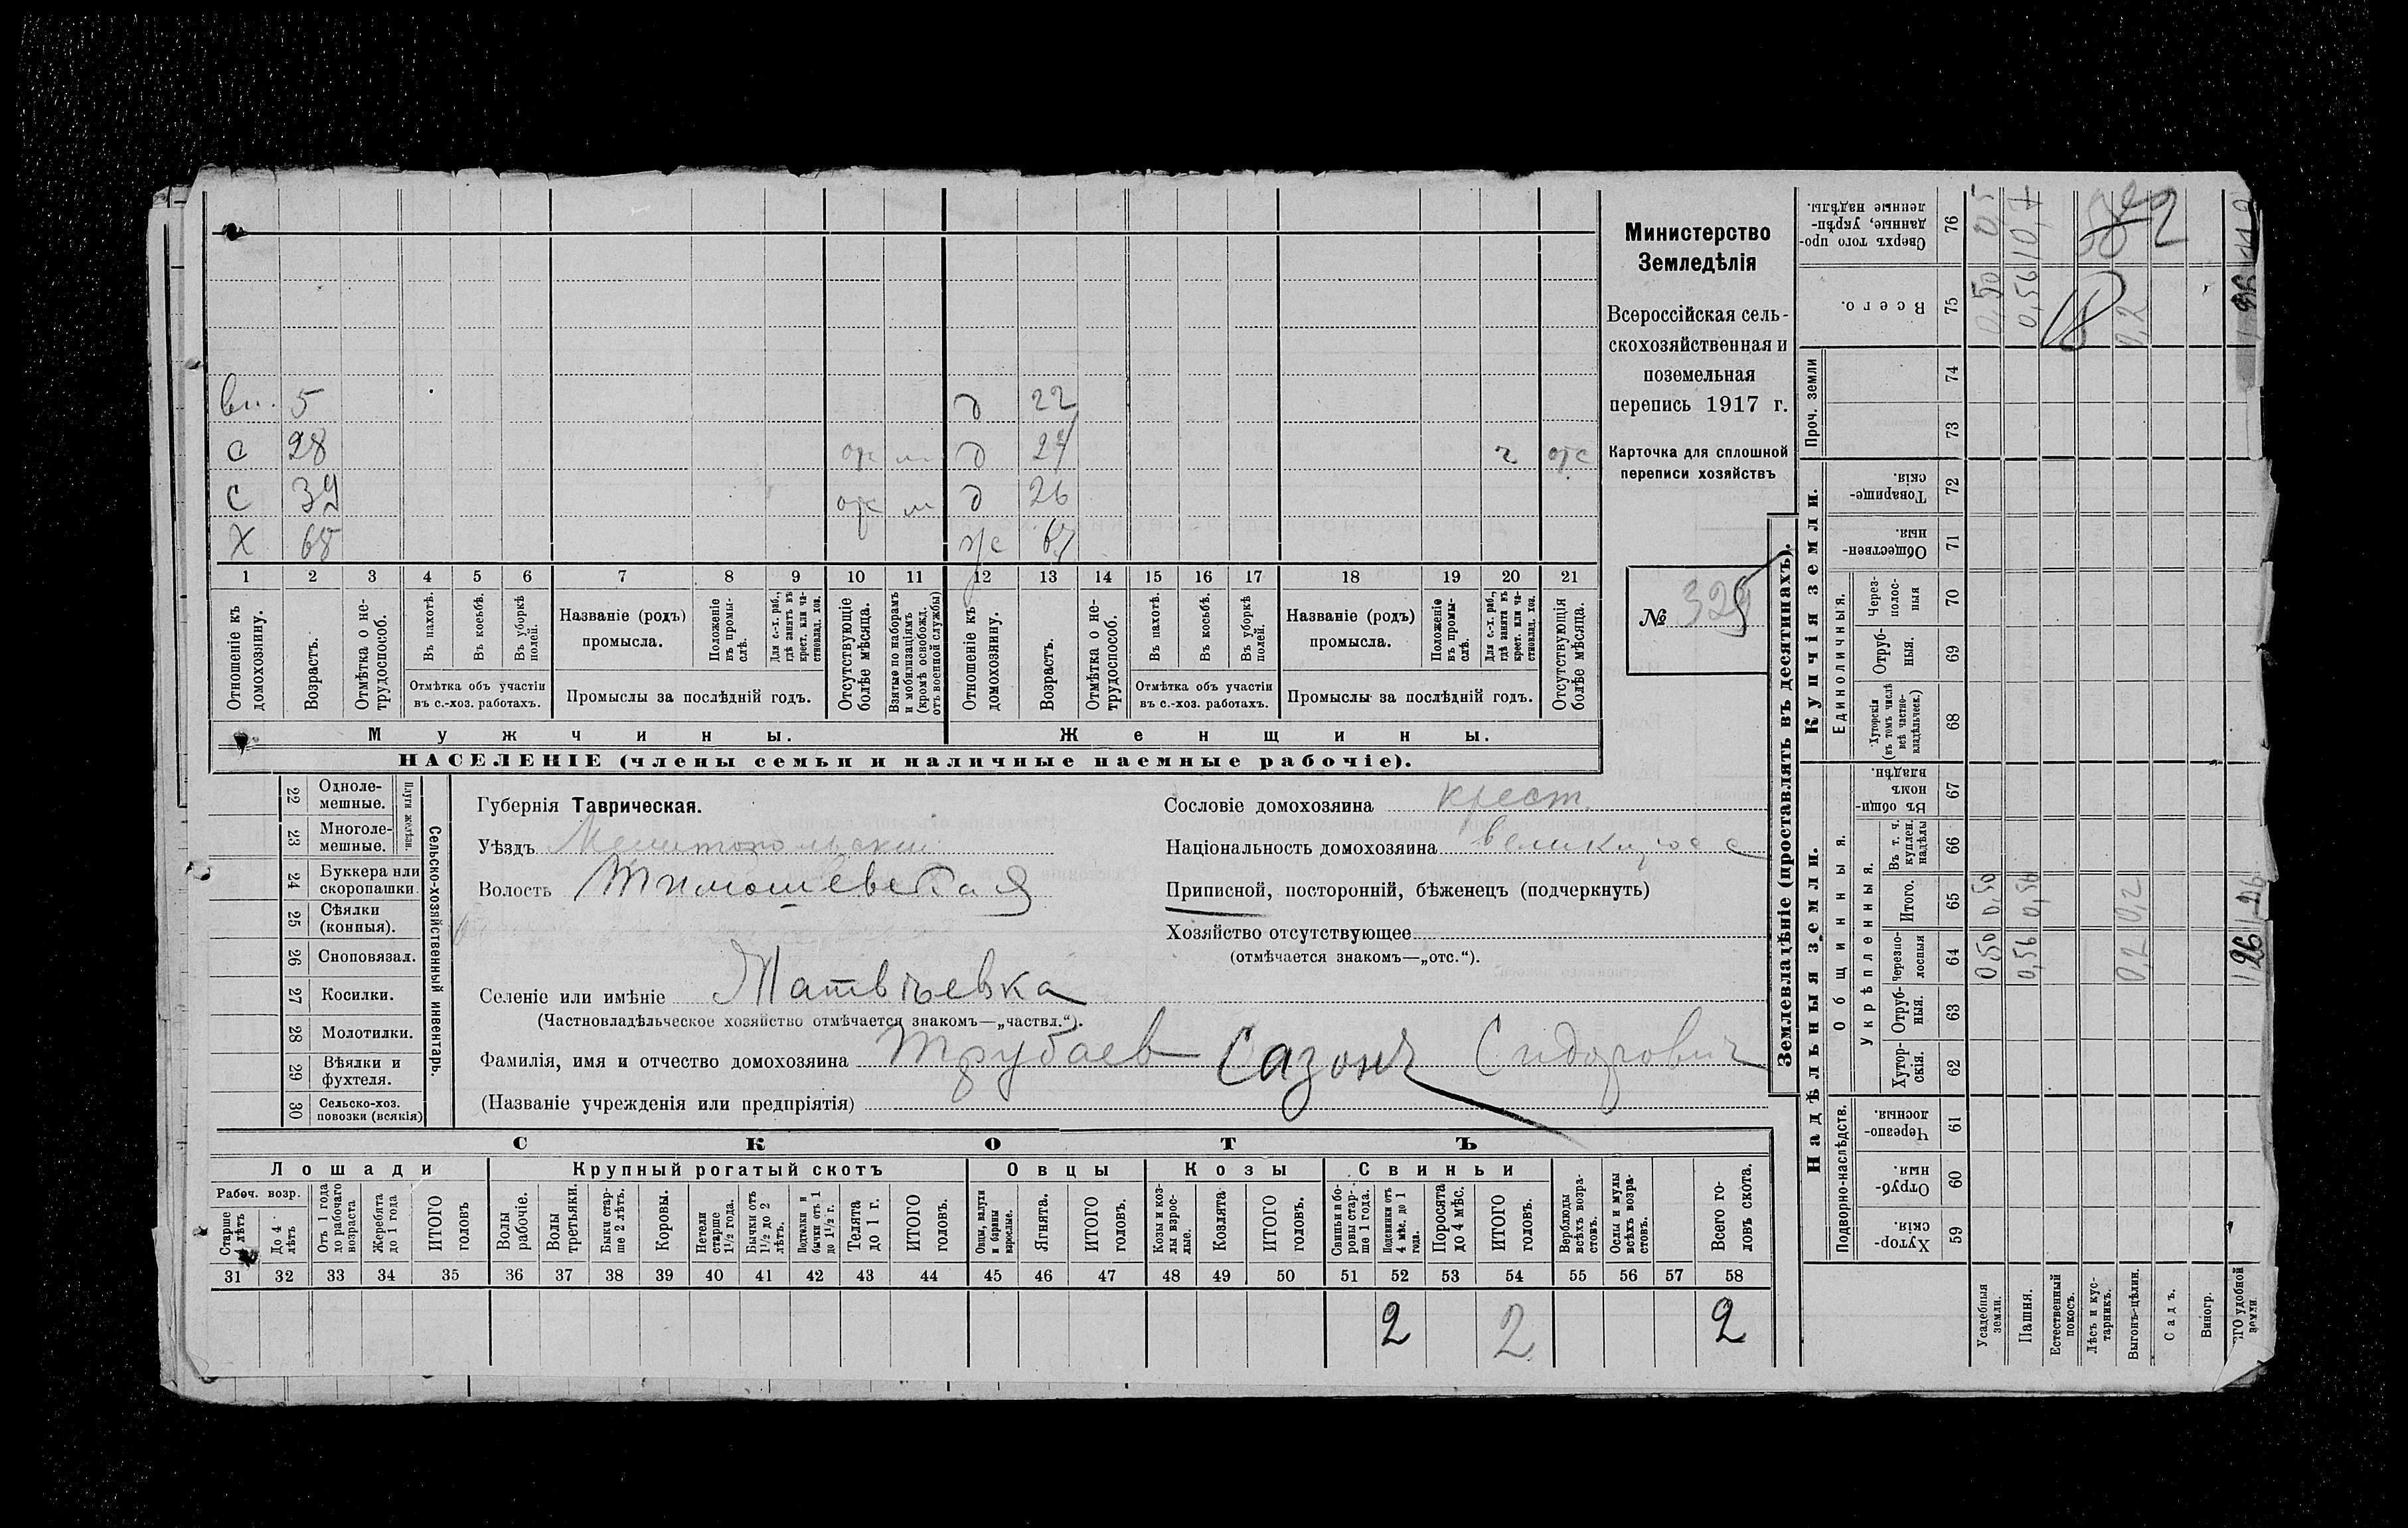 Министерство
Земледѣлія
Всероссійская сель-
скохозяйственная и
поземельная
перепись 1917 г.
Карточка для сплошной
переписи хозяйствъ
№ 329
вн. 5 д 22
с 28 д 24 ч отс
с 39 д 26
Х 68 ж
1 2 3 4 5 6 7 8 9 10 11 12 13 14 15 16 17 18 19 20 21
Отношеніе къ домохозяину.
Возрастъ.
Отмѣтка о не-трудоспособ.
Въ пахотѣ.
Въ косьбѣ.
Въ уборкѣ полей.
Отмѣтка объ участіи
въ с.-хоз. работахъ.
Названіе (родъ)
промысла.
Положеніе въ промы-слѣ.
Для с.-х. раб., гдѣ занятъ въ крест. или ча-стновлад. хоз.
Промыслы за послѣдній годъ.
Отсутствующіе болѣе мѣсяца.
Взятые по наборамъ и мобилизаціямъ (кромѣ освобожд. отъ военной службы)
Отношеніе къ домохозяину.
Возрастъ.
Отмѣтка о не-трудоспособ.
Въ пахотѣ.
Въ косьбѣ.
Въ уборкѣ полей.
Отмѣтка объ участіи
въ с.-хоз. работахъ.
Названіе (родъ)
промысла.
Положеніе въ промы-слѣ.
Для с.-х. раб., гдѣ занята въ крест. или ча-стновлад. хоз.
Промыслы за послѣдній годъ.
Отсутствующія болѣе мѣсяца.
Мужчины. Женщины.
НАСЕЛЕНІЕ (члены семьи и наличные наемные рабочіе).
22 Одноле-мешные.
23 Многоле-мешные.
Плуги желѣзн.
24 Буккера или скоропашки.
25 Сѣялки (конныя).
26 Сноповязал.
27 Косилки.
28 Молотилки.
29 Вѣялки и фухтеля.
30 Сельско-хоз. повозки (всякія)
Сельско-хозяйственный инвентарь.
Губернія Таврическая.
Уѣздъ Мелитопольскій
Волость Тимошевская
Селеніе или имѣніе Матвѣевка
(Частновладѣльческое хозяйство отмѣчается знакомъ—„частвл.“).
Фамилія, имя и отчество домохозяина Трубаев Сазонъ Сидорович
(Названіе учрежденія или предпріятія)
Сословіе домохозяина крест.
Національность домохозяина великорос
Приписной, посторонній, бѣженецъ (подчеркнуть)
Хозяйство отсутствующее
(отмѣчается знакомъ—„отс.“).
СКОТЪ
Лошади Крупный рогатый скотъ Овцы Козы Свиньи
Рабоч. возр.
Старше 4 лѣтъ
До 4 лѣтъ
Отъ 1 года до рабочаго возраста
Жеребята до 1 года
ИТОГО головъ
Волы рабочіе.
Волы третьяки.
Быки стар-ше 2 лѣтъ.
Коровы.
Нетели старше 1½ года.
Бычки отъ 1½ до 2 лѣтъ.
Подтелки и бычки отъ 1 до 1½ г.
Телята до 1 г.
ИТОГО головъ.
Овцы, валухи и бараны взрослые.
Ягнята.
ИТОГО головъ.
Козы и коз-лы взрос-лые.
Козлята
ИТОГО головъ.
Свиньи и бо-ровы стар-ше 1 года.
Подсвинки отъ 4 мѣс. до 1 года.
Поросята до 4 мѣс.
ИТОГО головъ.
Верблюды всѣхъ возра-стовъ.
Ослы и мулы всѣхъ возра-стовъ.
Всего го-ловъ скота.
31 32 33 34 35 36 37 38 39 40 41 42 43 44 45 46 47 48 49 50 51 52 53 54 55 56 57 58
2 2 2
Землевладѣніе (проставлять въ десятинахъ).
Надѣльныя земли. Купчія земли.
Проч. земли
Подворно-наслѣдств.
Общинныя.
Укрѣпленныя.
Единоличныя.
Хутор-скія. 59
Отруб-ныя. 60
Черезпо-лосныя. 61
Хутор-скія. 62
Отруб-ныя. 63
Черезпо-лосныя 64
Итого. 65
Въ т. ч. куплен. надѣлы 66
Въ общи-номъ владѣн. 67
Хуторскія (въ томъ числѣ всѣ частно-владѣльческ.) 68
Отруб-ныя. 69
Через-полос-ныя 70
Обществен-ныя. 71
Товарище-скія. 72
73
74
Всего. 75
Сверхъ того про-данные, укрѣп-ленные надѣлы. 76
Усадебныя земли. 0,50 0,50 0,50 0,5
Пашня. 0,56 0,56 0,56
Естественный покосъ.
Лѣсъ и кус-тарникъ.
Выгонъ-цѣлин. 0,2 0,2 0,2
Садъ.
Виногр.
ГО удобной земли 1,26 1,26